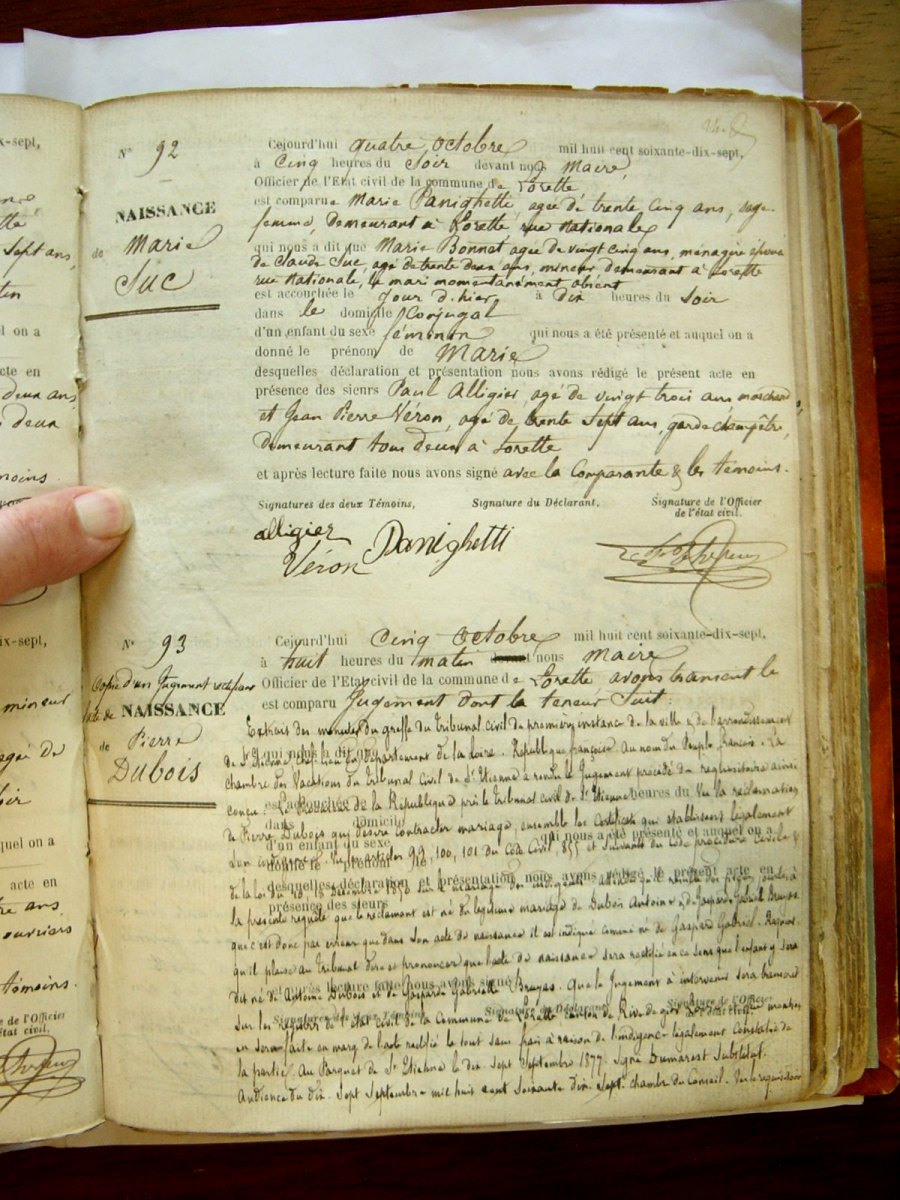 x-sept,
Sept ans,
el on a
acte en
deux ans
deux
moins.
ix-sept,
mineur
agé de
quel on a
acte en
ans
ouvriers
témoins.
e de l'Officier
état civil.
N° 92
NAISSANCE
de Marie
Suc
Cejourd'hui quatre Octobre mil huit cent soixante-dix-sept,
à Cinq heures du Soir devant nous Maire,
Officier de l'Etat civil de la commune de Lorette
est comparue Marie Panighetti, agée de trente Cinq ans, sage-
femme, demeurant à Lorette, rue Nationale
qui nous a dit que Marie Bonnet agée de vingt cinq ans, ménagère épouse
de Claude Suc, agé de trente deux ans, mineur demeurant à Lorette
rue Nationale, le mari momentanément absent
est accouchée le jour d'hier, à Dix heures du Soir
dans le domicile Conjugal
d'un enfant du sexe féminin qui nous a été présenté et auquel on a
donné le prénom de Marie
desquelles déclaration et présentation nous avons rédigé le présent acte en
présence des sieurs Paul Alligier, agé de vingt trois ans marchand
et Jean Pierre Véron, agé de trente Sept ans, garde champêtre,
demeurant tous deux à Lorette
et après lecture faite nous avons signé avec la Comparante & les témoins.
Signatures des deux Témoins, Signature du Déclarant, Signature de l'Officier
de l'état civil.
alligier
Véron Panighetti
N° 93
Copie d'un Jugement
acte de NAISSANCE
de Pierre
Dubois
Cejourd'hui Cinq Octobre mil huit cent soixante-dix-sept,
à huit heures du matin devant nous Maire
Officier de l'Etat civil de la commune de Lorette avons transcrit le
est comparu Jugement dont la teneur Suit:
Extrait des minutes du greffe du tribunal Civil de première instance de la ville & de l'arrondissement
de St Etienne chef lieu du département de la Loire. République française. Au nom du Peuple français. La
qui nous a dit que
chambre des Vacations du tribunal Civil de St Etienne a rendu le Jugement précédé du réquisitoire ainsi
conçu: Le Procureur de la République près le tribunal civil de St Etienne Vu la réclamation
est accouchée heures du
dans domicile
de Pierre Dubois qui désire contracter mariage, ensemble les Certificats qui établissent légalement
d'un enfant du sexe qui nous a été présenté et auquel on a
Son indigence. Vu les articles 99, 100, 101 du Code Civil, 855 et Suivants du Code procédure Civile &
donné le prénom de
de la loi du 10 décembre 1850 sur le mariage des indigents
desquelles déclaration et présentation nous avons rédigé le présent acte en
présence des sieurs
la présente requête que le réclamant est né du légitime mariage de Dubois Antoine & de Gaspard Gabriel Bruyas
que c'est donc par erreur que dans Son acte de naissance il est indiqué comme né de Gaspard Gabriel.
qu'il plaise au tribunal dire et prononcer que l'acte de naissance Sera rectifié en ce Sens que l'enfant y Sera
et après lecture faite nous avons signé
dit né de Antoine Dubois et de Gasparde Gabrielle Bruyas. Que le Jugement à intervenir Sera transcrit
Signatures des deux Témoins, Signature du Déclarant, Signature de l'Officier
Sur les registres de l'état Civil de la Commune de Lorette canton de Rive de gier
en Sera faite en marge de l'acte rectifié le tout Sans frais à raison de l'indigence légalement Constatée de
la partie. Au Parquet de St Etienne le dix Sept Septembre 1877. Signé Dumarest Substitut.
Audience du dix Sept Septembre mil huit cent Soixante dix Sept. chambre du Conseil. Vu le réquisitoire